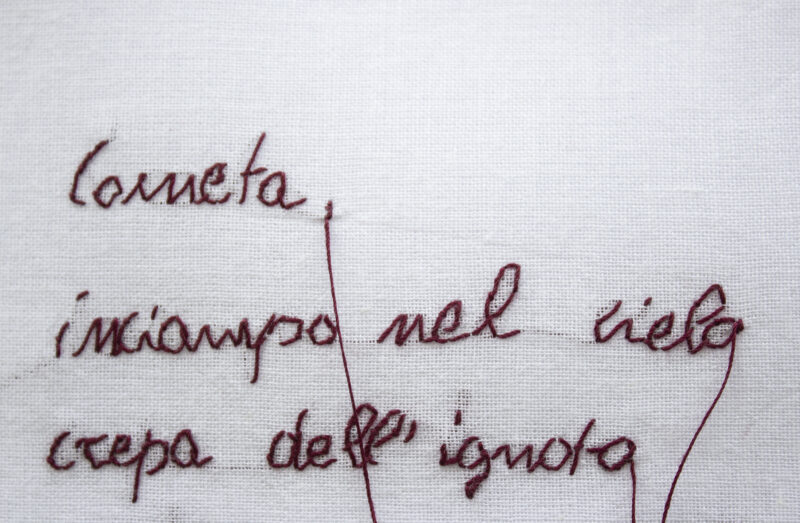 Cometa,
inciampo nel cielo
crepa dell'ignota